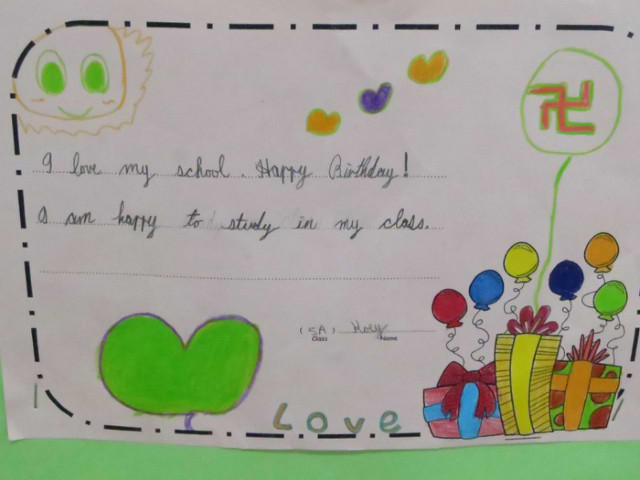 卍
I love my school. Happy Birthday!
I am happy to study in my class.
(5A)
Class Name
Love